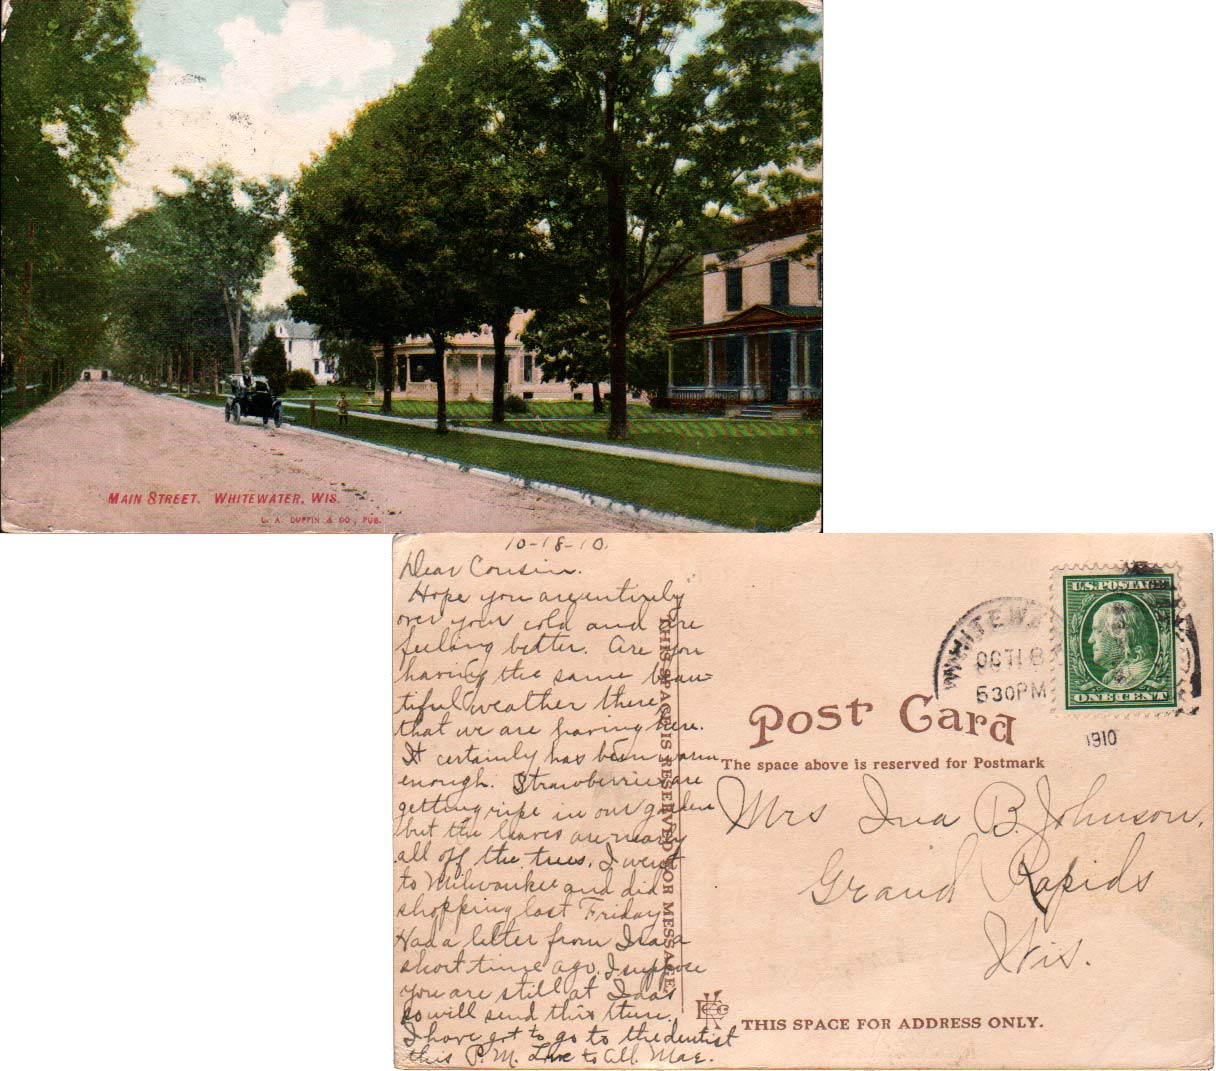 MAIN STREET. WHITEWATER, WIS.
L. A. DUFFIN & CO., PUB.
10-18-10.
Dear Cousin.
Hope you are entirely
over your cold and are
feeling better. Are you
having the same beau-
tiful weather there,
that we are having here.
It certainly has been warm
enough. Strawberries are
getting ripe in our garden
but the leaves are nearly
all off the trees. I went
to Milwaukee and did
shopping last Friday.
Had a letter from Isa a
short time ago. I suppose
you are still at Ida's
so will send this there.
I have got to go to the dentist
this P.M. Love to all. Mae.
THIS SPACE IS RESERVED FOR MESSAGE.
WHITEWA
OCT 18
530PM
1910
U.S. POSTAGE
ONE CENT
Post Card
The space above is reserved for Postmark
Mrs Ina B. Johnson,
Grand Rapids
Wis.
THIS SPACE FOR ADDRESS ONLY.